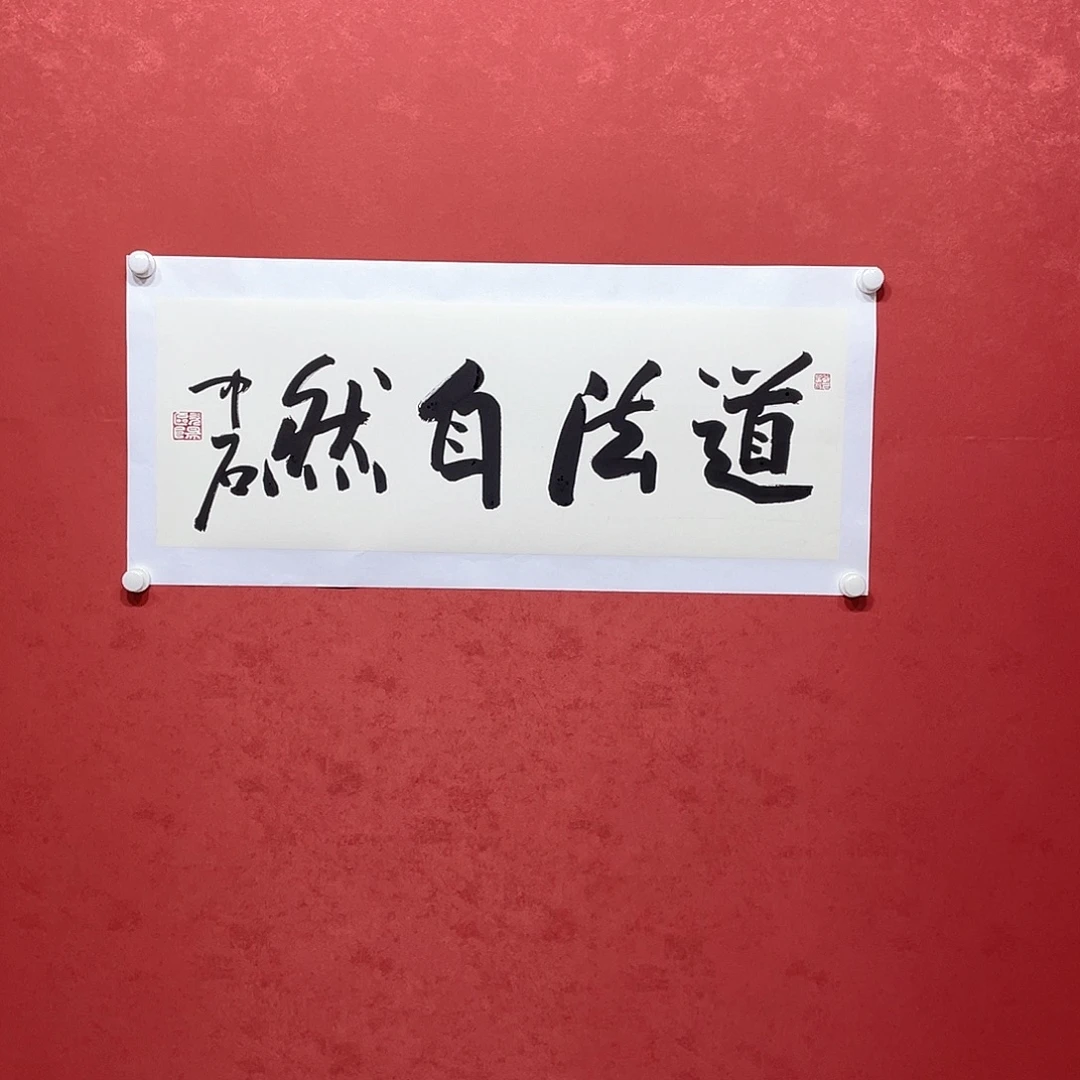 道法自然
中石